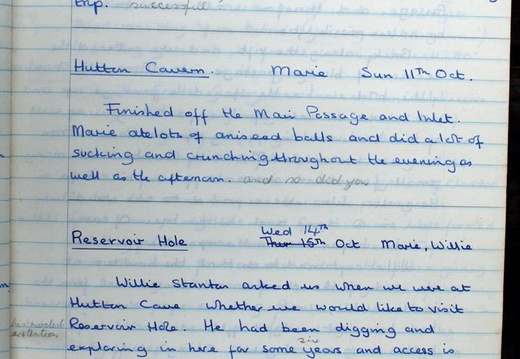 trip. successful
Hutton Cavern. Marie Sun 11th Oct.
Finished off the Main Passage and Inlet.
Marie ate lots of aniseed balls and did a lot of
sucking and crunching throughout the evening as
well as the afternoon. and so did you
Wed 14th
Reservoir Hole Thur 15th Oct Marie, Willie
Willie Stanton asked us when we were at
Hutton Cave whether we would like to visit
Reservoir Hole. He had been digging and
six
exploring in here for some years and access is